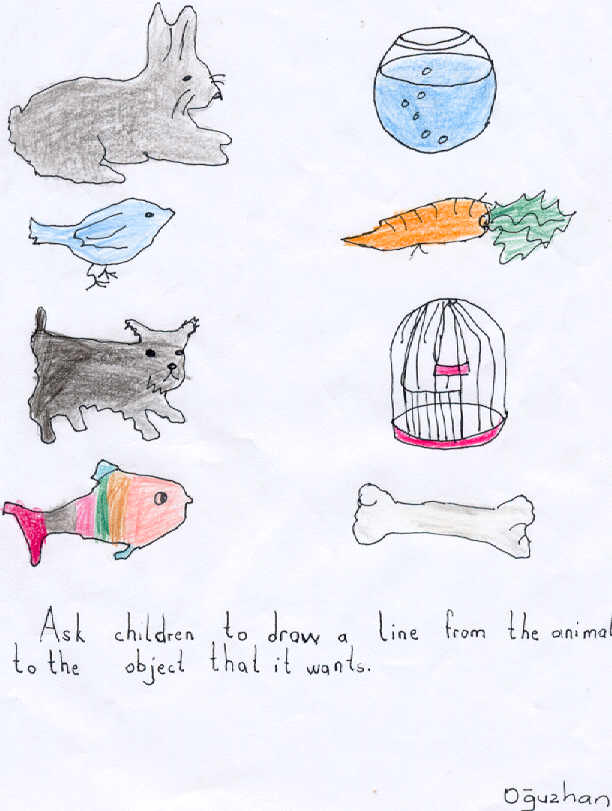 Ask children to draw a line from the animal
to the object that it wants.
Oğuzhan